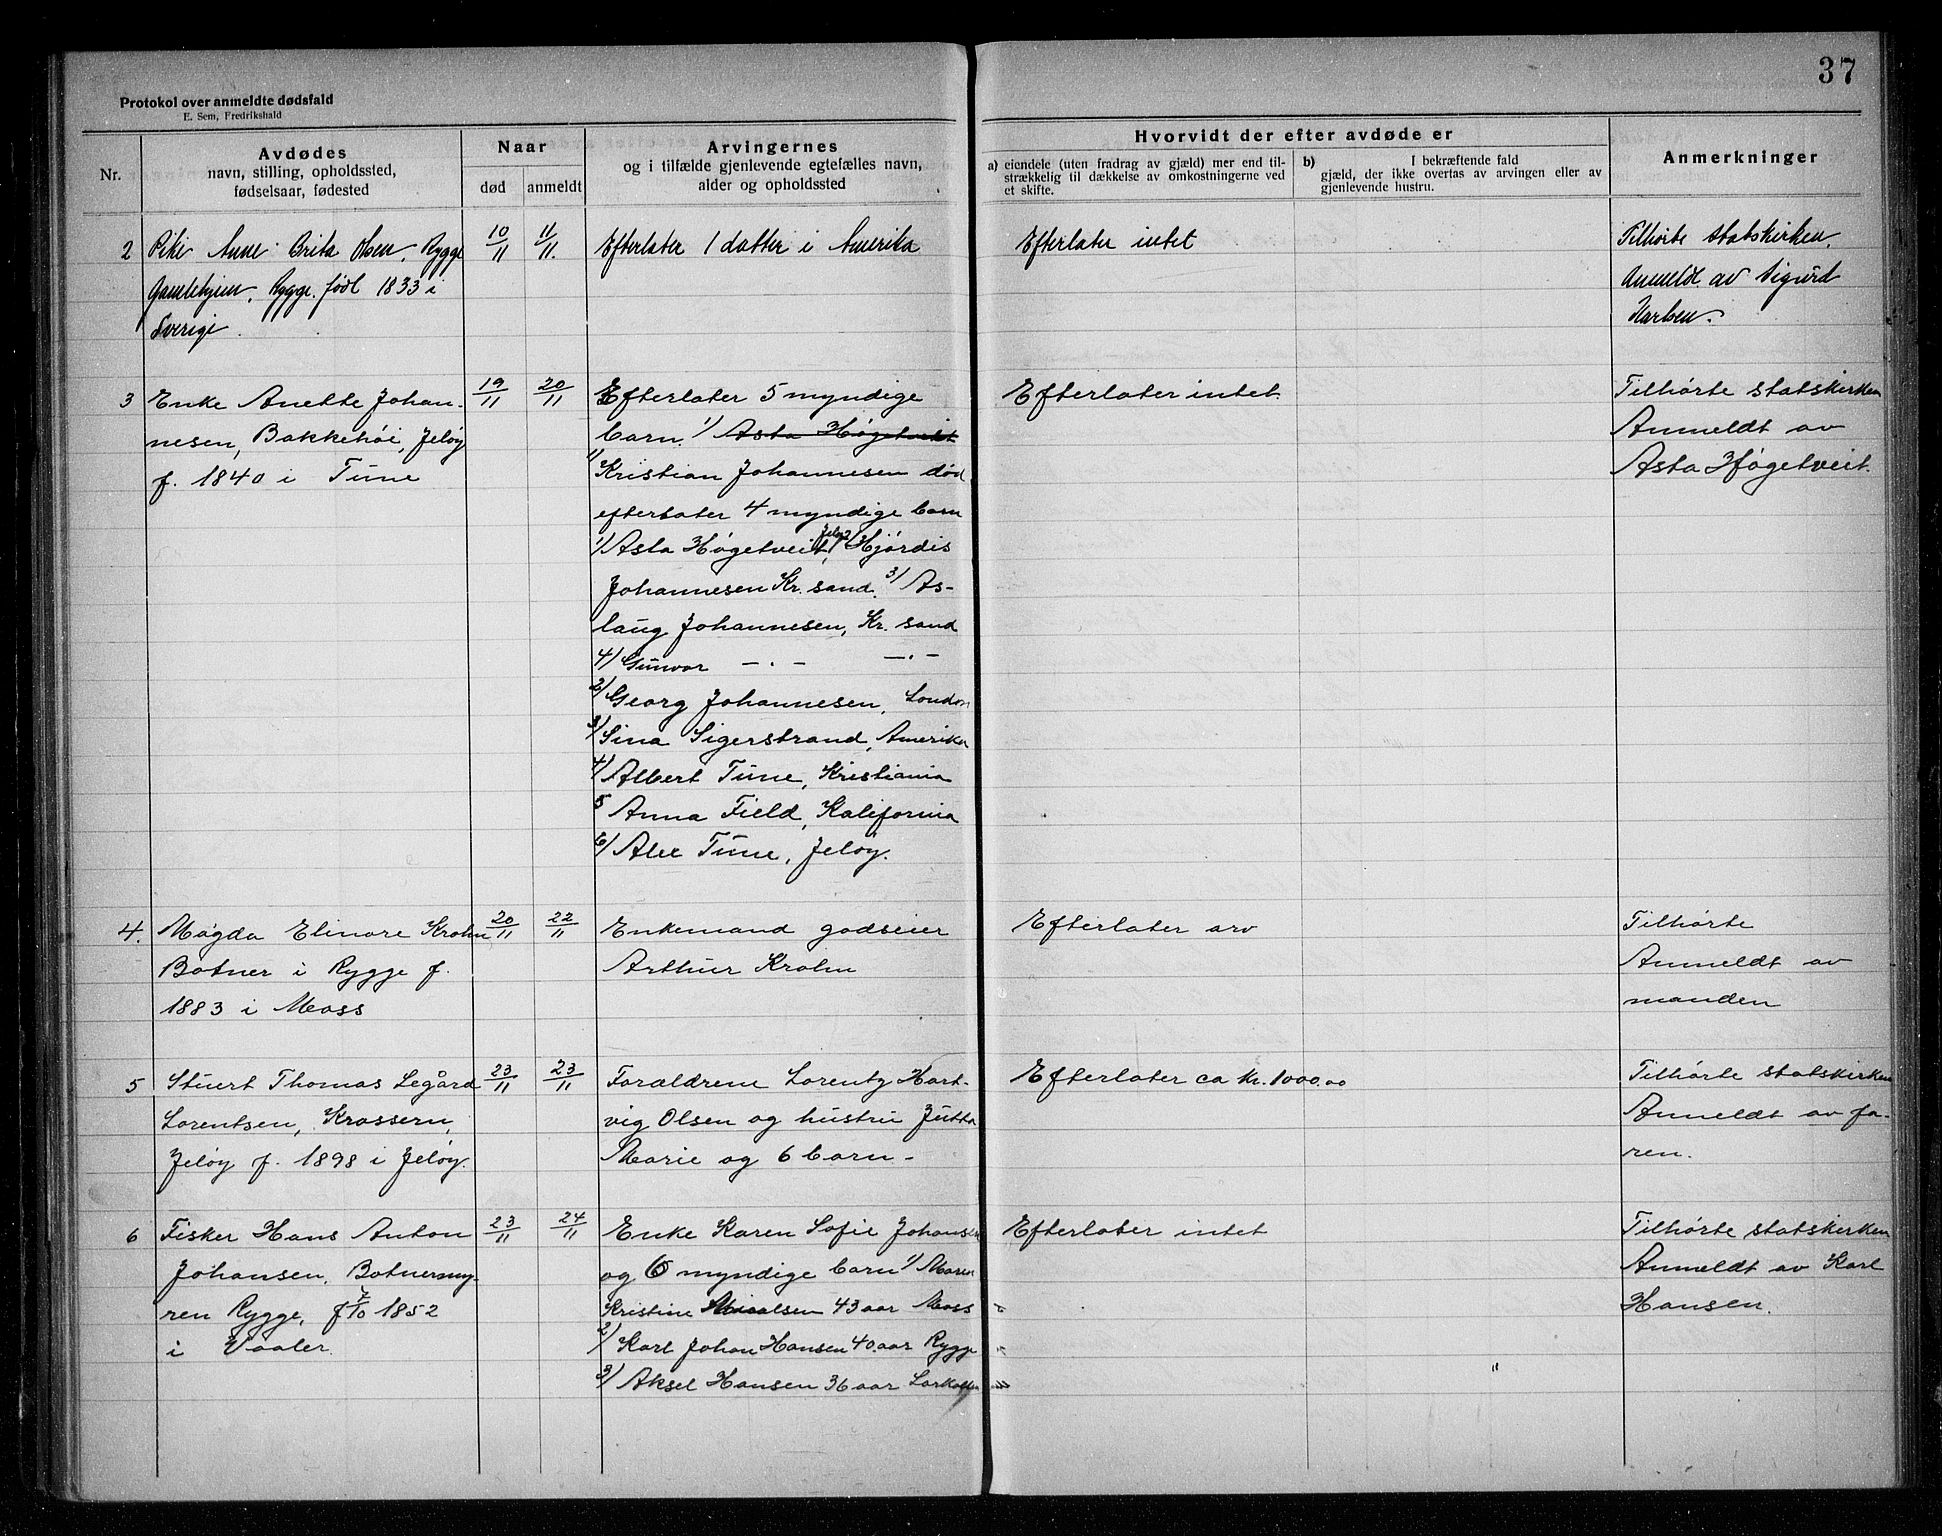 37
Protokol over anmeldte dødsfald
E. Sem, Fredrikshald
Nr.
Avdødes
navn, stilling, opholdssted,
fødselsaar, fødested
Naar
død
anmeldt
Arvingernes
og i tilfælde gjenlevende egtefælles navn,
alder og opholdssted
Hvorvidt der efter avdøde er
a) eiendele (uten fradrag av gjæld) mer end til-
strækkelig til dækkelse av omkostningerne ved
et skifte.
b) I bekræftende fald
gjæld, der ikke overtas av arvingen eller av
gjenlevende hustru.
Anmerkninger
2
Pike Anne Brita Olsen, Rygge
Gamlehjem, Rygge. født 1833 i
Sverige.
10/11
11/11.
Efterlater 1 datter i Amerika
Efterlater intet
Tilhørte statskirken.
Anmeldt av Sigurd
Karlsen.
3
Enke Anette Johan-
nesen, Bakkehøi, Jeløy
f. 1840 i Tune
19/11
20/11
Efterlater 5 myndige
barn. 1/ Asta Høgetveit
1/ Kristian Johannesen død
efterlater 4 myndige barn
1/ Asta Høgetveit, Jeløy 2/ Hjørdis
Johannesen Kr. sand. 3/ As-
laug Johannesen, Kr. sand
4/ Gunvor —.— —.—
2/ Georg Johannesen, London
3/ Sina Sigerstrand, Amerika
4/ Albert Tune, Kristiania
5 Anna Field, Kalifornia
6/ Alex Tune, Jeløy.
Efterlater intet.
Tilhørte statskirken
Anmeldt av
Asta Høgetveit.
4.
Magda Elinore Krohn
Botner i Rygge f.
1883 i Moss
20/11
22/11
Enkemand godseier
Arthur Krohn
Efterlater arv
Tilhørte
Anmeldt av
manden
5
Stuert Thomas Legård
Lorentsen, Krossern,
Jeløy f. 1898 i Jeløy.
23/11
23/11
Forældrene Lorentz Hart-
vig Olsen og hustru Jutta
Marie og 6 barn -
Efterlater ca Kr. 1000.00
Tilhørte statskirken
Anmeldt av fa-
ren.
6
Fisker Hans Anton
Johansen, Botnermy-
ren Rygge, f 7/10 1852
i Vaaler.
23/11
24/11
Enke Karen Sofie Johansen
og 6 myndige barn 1/ Maren
Kristine 43 aar Moss
2/ Karl Johan Hansen 40 aar Rygge
3/ Aksel Hansen 36 aar Larkollen
Efterlater intet
Tilhørte statskirken
Anmeldt av Karl
Hansen.